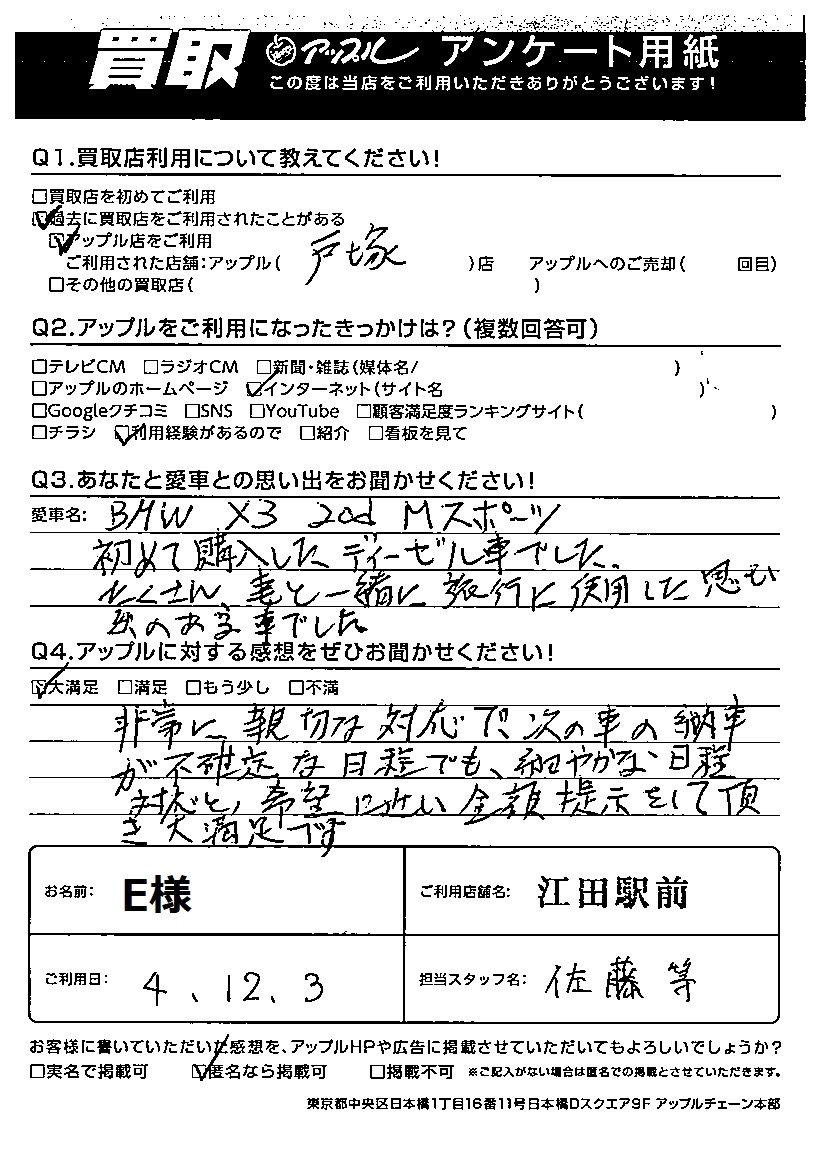 買取 アップル アンケート用紙
この度は当店をご利用いただきありがとうございます!
Q1.買取店利用について教えてください!
□買取店を初めてご利用
☑過去に買取店をご利用されたことがある
☑アップル店をご利用
ご利用された店舗:アップル( 戸塚 )店 アップルへのご売却( 回目)
□その他の買取店( )
Q2.アップルをご利用になったきっかけは?(複数回答可)
□テレビCM □ラジオCM □新聞・雑誌(媒体名/ )
□アップルのホームページ ☑インターネット(サイト名 )
□Googleクチコミ □SNS □YouTube □顧客満足度ランキングサイト( )
□チラシ ☑利用経験があるので □紹介 □看板を見て
Q3.あなたと愛車との思い出をお聞かせください!
愛車名: BMW X3 20d Mスポーツ
初めて購入したディーゼル車でした。
たくさん、妻と一緒に旅行に使用した思い
出のある車でした。
Q4.アップルに対する感想をぜひお聞かせください!
☑大満足 □満足 □もう少し □不満
非常に親切な対応で、次の車の納車
が不確定な日程でも、細やかな日程
対応と、希望に近い金額提示をして頂
き大満足です
お名前: E様 ご利用店舗名: 江田駅前
ご利用日: 4、12、3 担当スタッフ名: 佐藤 等
お客様に書いていただいた感想を、アップルHPや広告に掲載させていただいてもよろしいでしょうか?
□実名で掲載可 ☑匿名なら掲載可 □掲載不可 ※ご記入がない場合は匿名での掲載とさせていただきます。
東京都中央区日本橋1丁目16番11号日本橋Dスクエア9F アップルチェーン本部